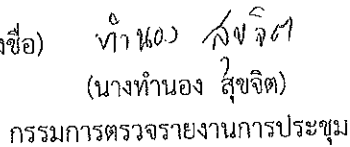 งชื่อ) ทำนอง สุขจิต
(นางทำนอง สุขจิต)
กรรมการตรวจรายงานการประชุม